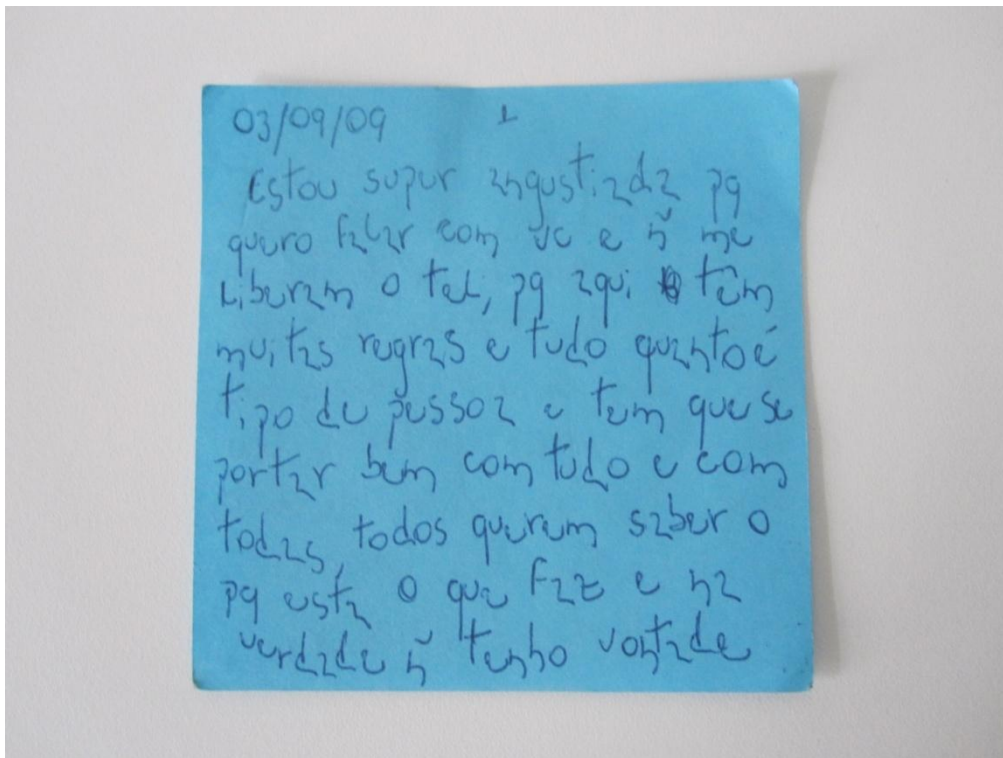 03/09/09 1
Estou super angustiada pq
quero falar com vc e ñ me
liberam o tel, pq aqui têm
muitas regras e tudo quanto é
tipo de pessoa e tem que se
portar bem com tudo e com
todas, todos querem saber o
pq esta o que faz e na
verdade ñ tenho vontade